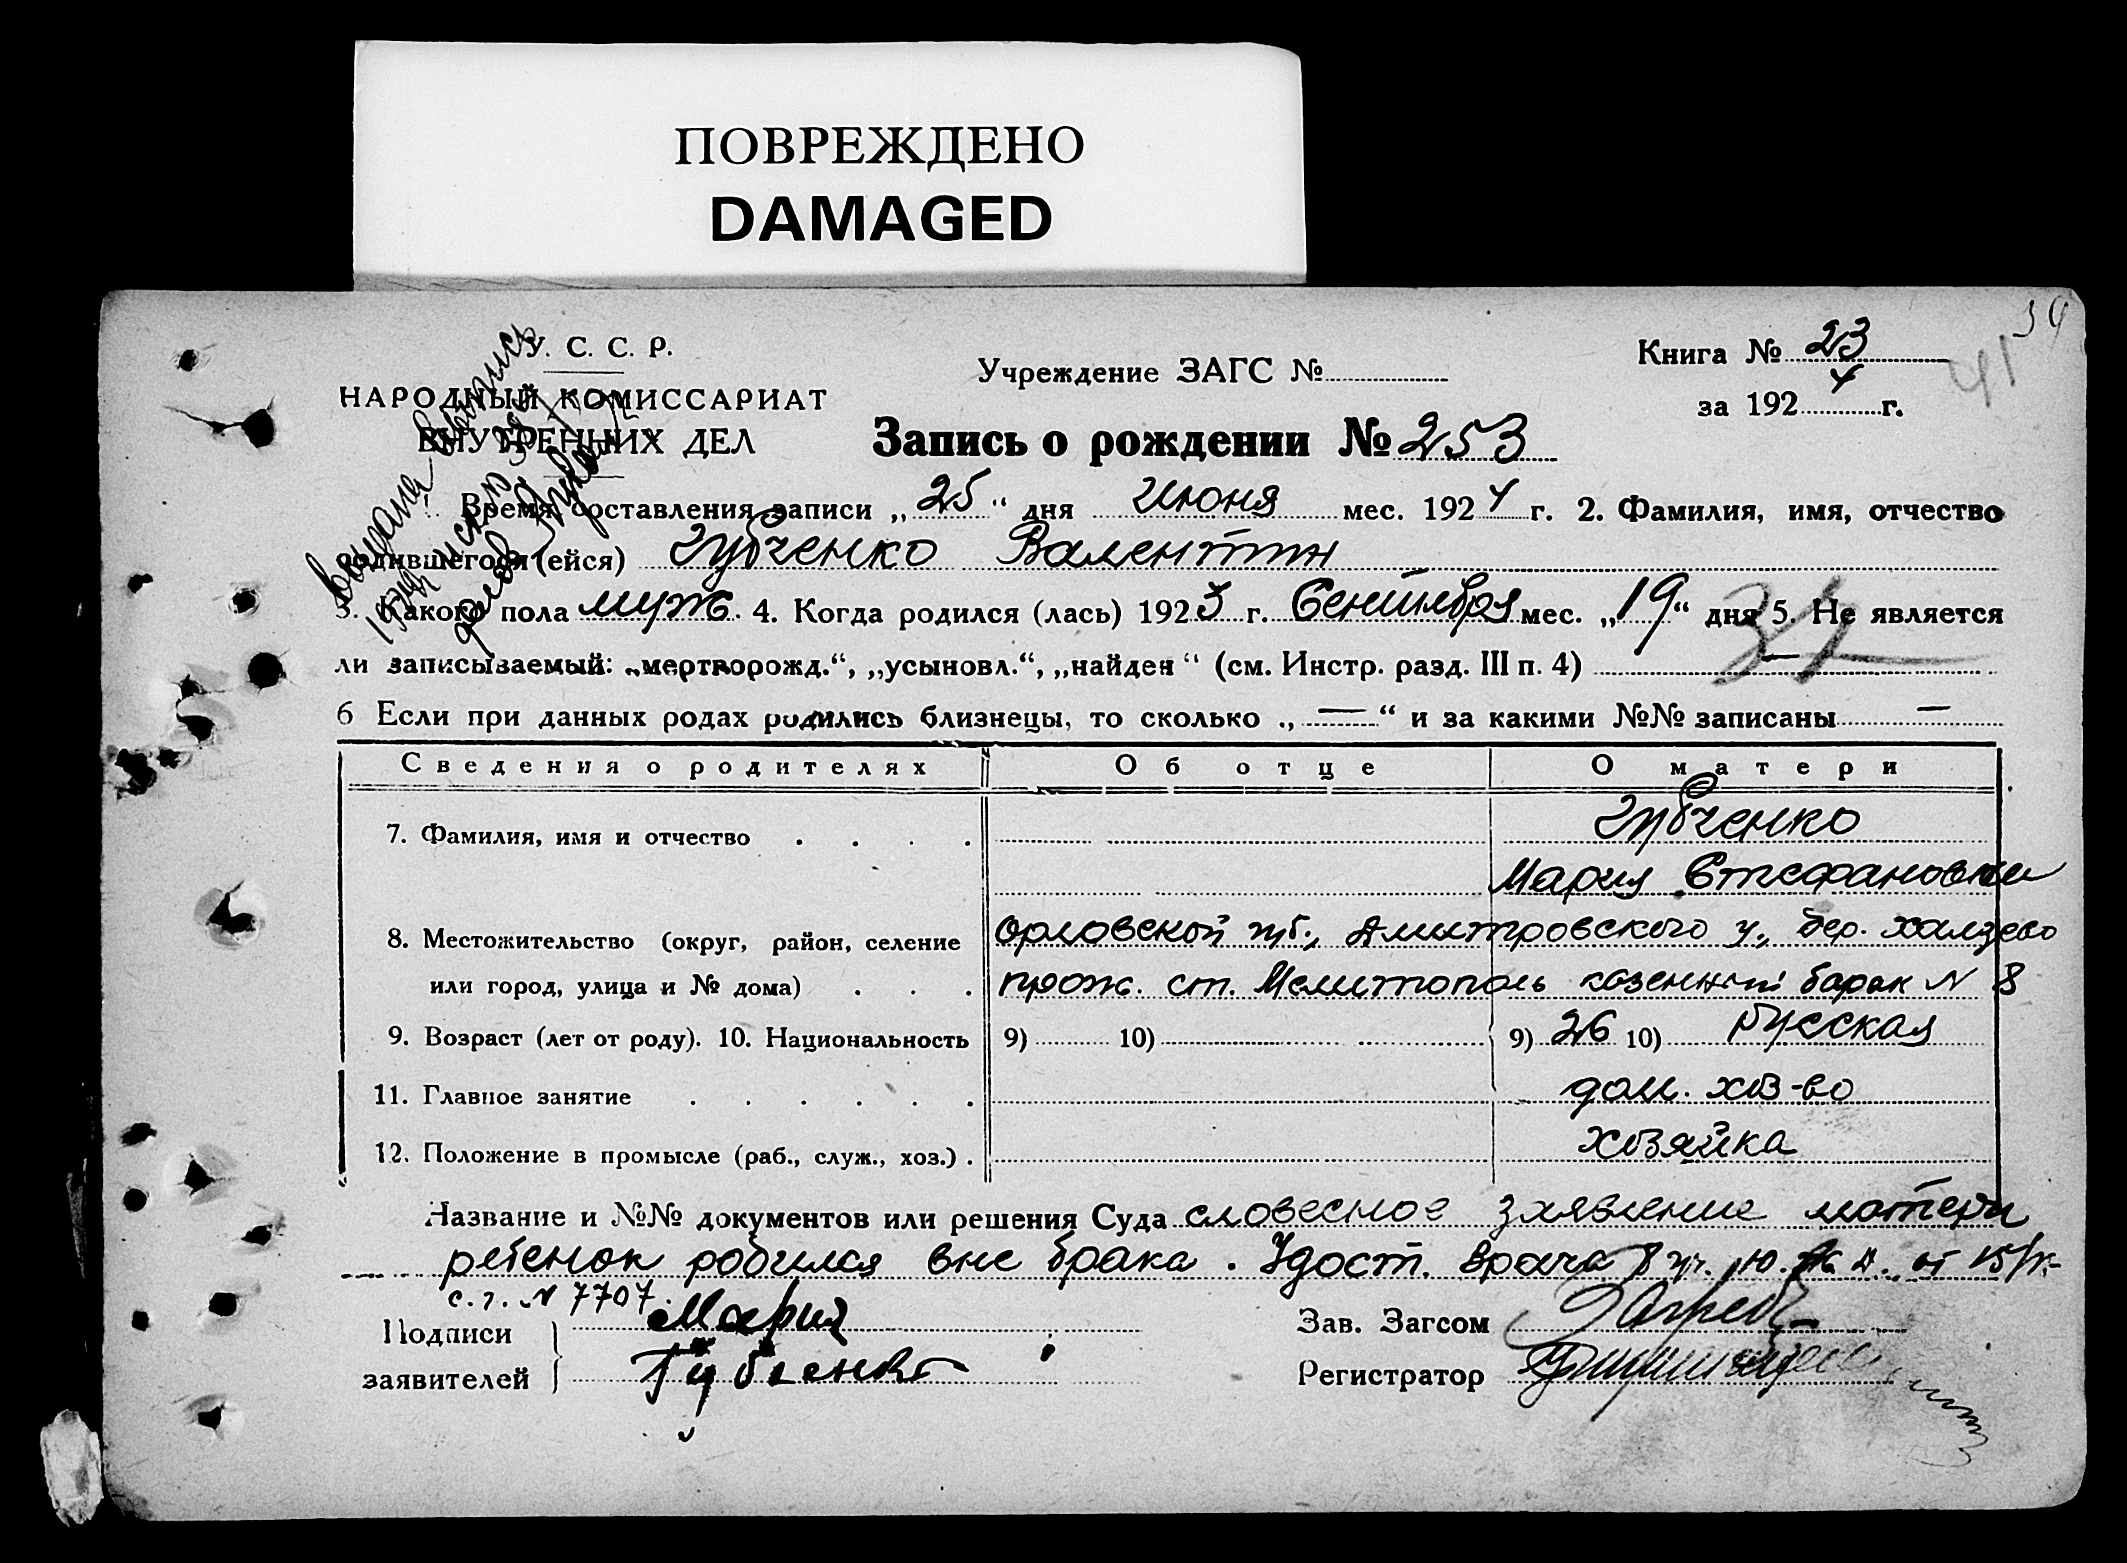 ПОВРЕЖДЕНО
DAMAGED
34
41
У. С. С. Р.
НАРОДНЫЙ КОМИССАРИАТ
ВНУТРЕННИХ ДЕЛ
Учреждение ЗАГС №
Книга № 23
за 1924 г.
Запись о рождении № 253
выдана выпись
Время составления записи „25“ дня Июня мес. 1924 г. 2. Фамилия, имя, отчество
родившегося (ейся) Губченко Валентин
3. Какого пола муж. 4. Когда родился (лась) 1923 г. Сентября мес. „19“ дня 5. Не является
ли записываемый: „мертворожд.“, „усыновл.“, „найден“ (см. Инстр. разд. III п. 4) —
6 Если при данных родах родились близнецы, то сколько „—“ и за какими №№ записаны —
Сведения о родителях Об отце О матери
7. Фамилия, имя и отчество Губченко
Мария Стефановна
8. Местожительство (округ, район, селение Орловской губ., Дмитровского у., дер. Халзево
или город, улица и № дома) прож. ст. Мелитополь казенный барак N 8
9. Возраст (лет от роду). 10. Национальность 9) 10) 9) 26 10) Русская
11. Главное занятие дом. хоз-во
12. Положение в промысле (раб., служ., хоз.) хозяйка
Название и №№ документов или решения Суда словесное заявление матери
ребенок родился вне брака. Удост. врача 8 уч. Ю. ж. д. от 15/
с. г. N 7707.
Подписи Мария
заявителей Губченко
Зав. Загсом
Регистратор